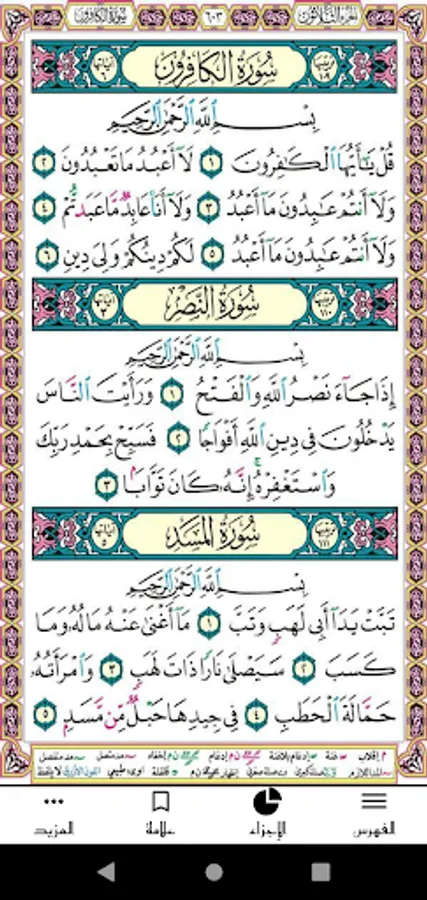 الجزء الثلاثون ٦٠٣ سورة الكافرون
سُورَةُ الكَافِرُونَ
بِسْمِ اللَّهِ الرَّحْمَٰنِ الرَّحِيمِ
قُلْ يَٰٓأَيُّهَا الْكَٰفِرُونَ ١ لَآ أَعْبُدُ مَا تَعْبُدُونَ ٢
وَلَآ أَنتُمْ عَٰبِدُونَ مَآ أَعْبُدُ ٣ وَلَآ أَنَا۠ عَابِدٌ مَّا عَبَدتُّمْ ٤
وَلَآ أَنتُمْ عَٰبِدُونَ مَآ أَعْبُدُ ٥ لَكُمْ دِينُكُمْ وَلِيَ دِينِ ٦
سُورَةُ النَّصْرِ
بِسْمِ اللَّهِ الرَّحْمَٰنِ الرَّحِيمِ
إِذَا جَآءَ نَصْرُ اللَّهِ وَالْفَتْحُ ١ وَرَأَيْتَ النَّاسَ
يَدْخُلُونَ فِي دِينِ اللَّهِ أَفْوَاجًا ٢ فَسَبِّحْ بِحَمْدِ رَبِّكَ
وَاسْتَغْفِرْهُ إِنَّهُۥ كَانَ تَوَّابًۢا ٣
سُورَةُ المَسَدِ
بِسْمِ اللَّهِ الرَّحْمَٰنِ الرَّحِيمِ
تَبَّتْ يَدَآ أَبِي لَهَبٍ وَتَبَّ ١ مَآ أَغْنَىٰ عَنْهُ مَالُهُۥ وَمَا
كَسَبَ ٢ سَيَصْلَىٰ نَارًا ذَاتَ لَهَبٍ ٣ وَامْرَأَتُهُۥ
حَمَّالَةَ الْحَطَبِ ٤ فِي جِيدِهَا حَبْلٌ مِّن مَّسَدٍۭ ٥
الفهرس
الإجزاء
علامة
المزيد